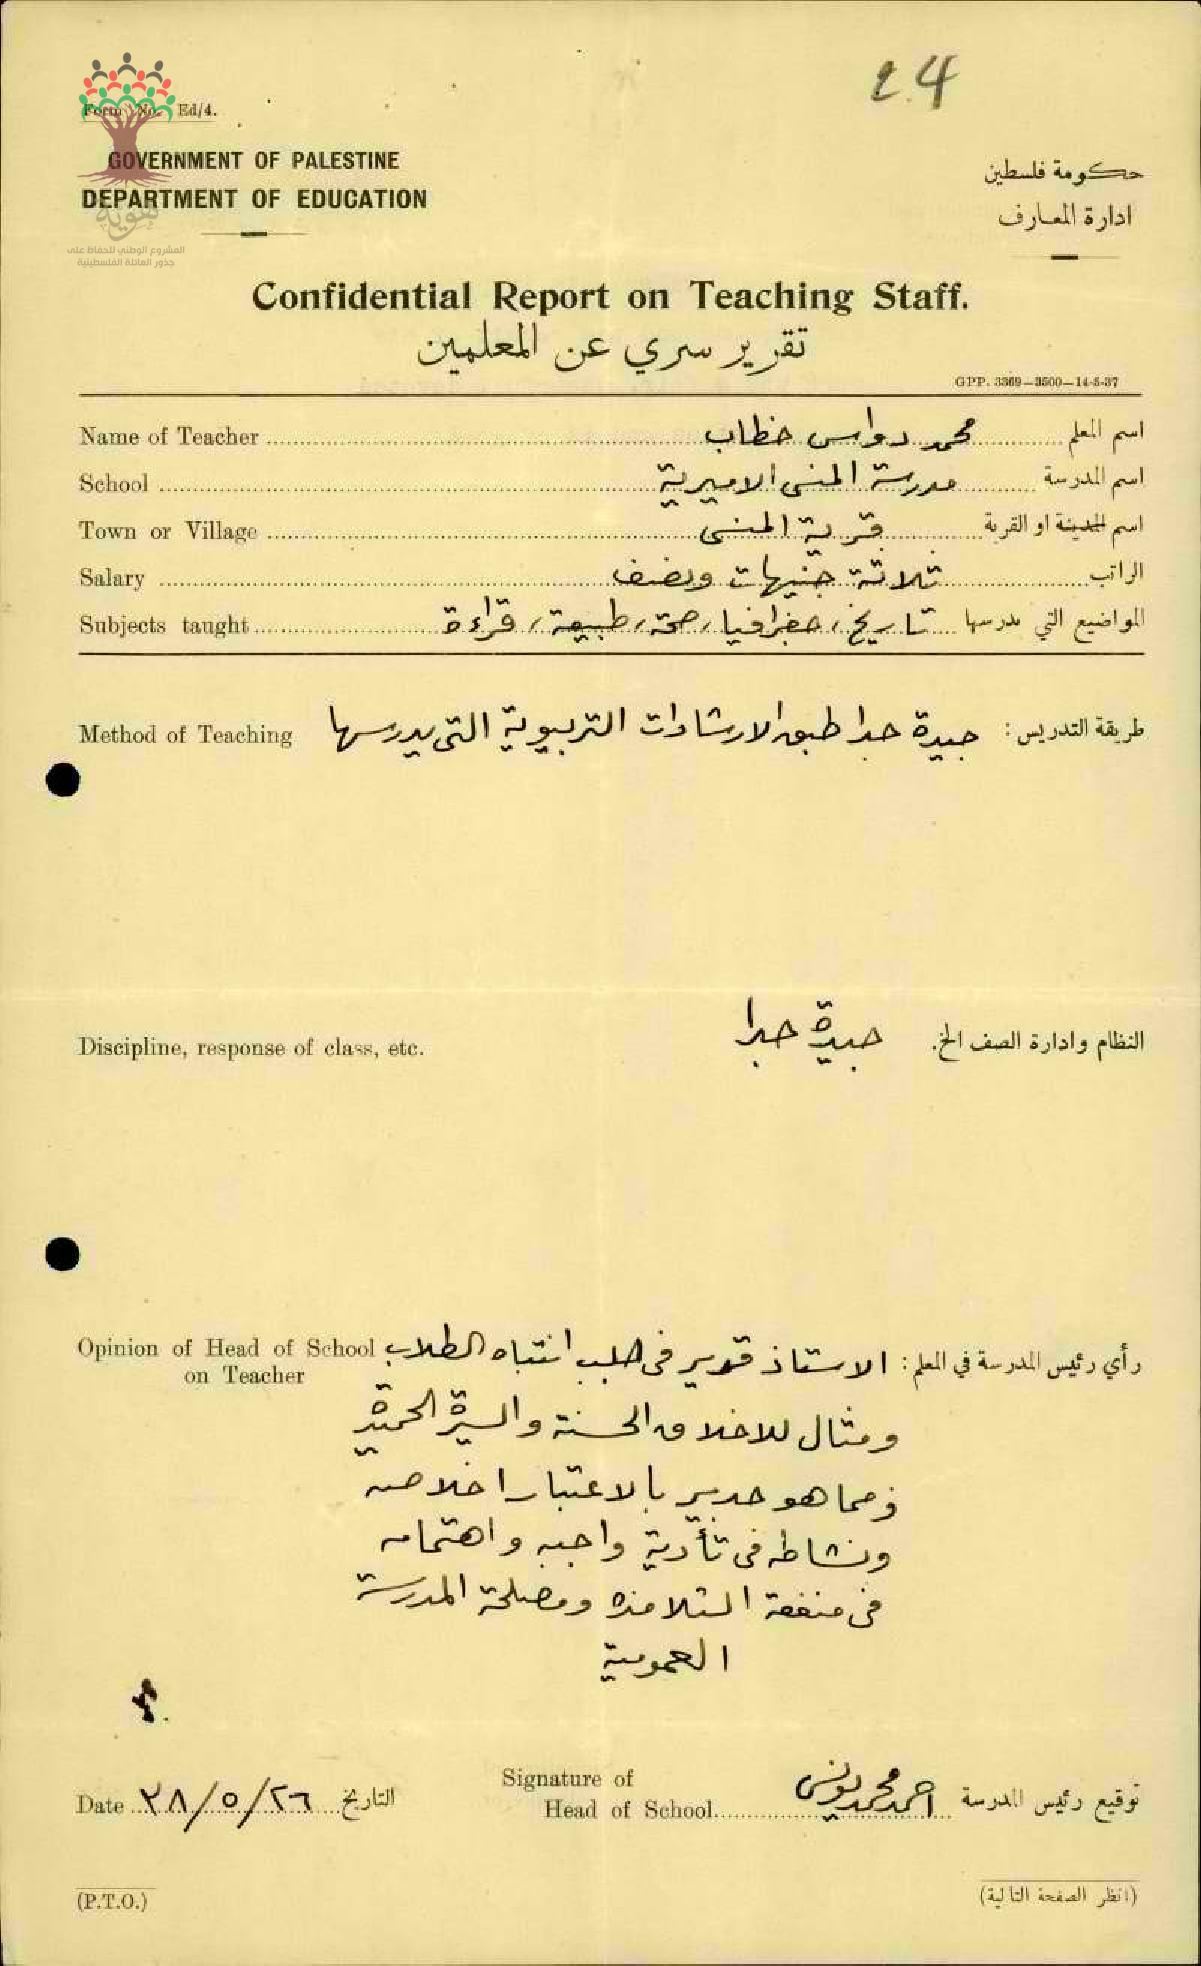 24
Form No. Ed/4.
GOVERNMENT OF PALESTINE
DEPARTMENT OF EDUCATION
حكومة فلسطين
ادارة المعارف
هوية
المشروع الوطني للحفاظ على
جذور العائلة الفلسطينية
Confidential Report on Teaching Staff.
تقرير سري عن المعلمين
GPP. 3369—3500—14-5-37
Name of Teacher محمد دواس خطاب اسم المعلم
School مدرسة المنسي الاميرية اسم المدرسة
Town or Village قرية المنسي اسم المدينة او القرية
Salary ثلاثة جنيهات ونصف الراتب
Subjects taught تاريخ، جغرافيا، صحة، طبيعة، قراءة المواضيع التي مدرسها
Method of Teaching طريقة التدريس: جيدة جدا طبق الارشادات التربيوية التي يدرسها
Discipline, response of class, etc. النظام وادارة الصف الخ. جيدة جدا
Opinion of Head of School رأي رئيس المدرسة في المعلم: الاستاذ قدير في جلب انتباه الطلاب
on Teacher
ومثال للاخلاق الحسنة والسيرة الحميدة
ومما هو جدير بالاعتبار اخلاصه
ونشاطه في تأدية واجبه واهتمامه
في منفعة التلامذة ومصلحة المدرسة
العمومية
Signature of
Head of School احمد محمد يونس توقيع رئيس المدرسة
Date ٣٨/٥/٢٦ التاريخ
(P.T.O.) (انظر الصفحة التالية)